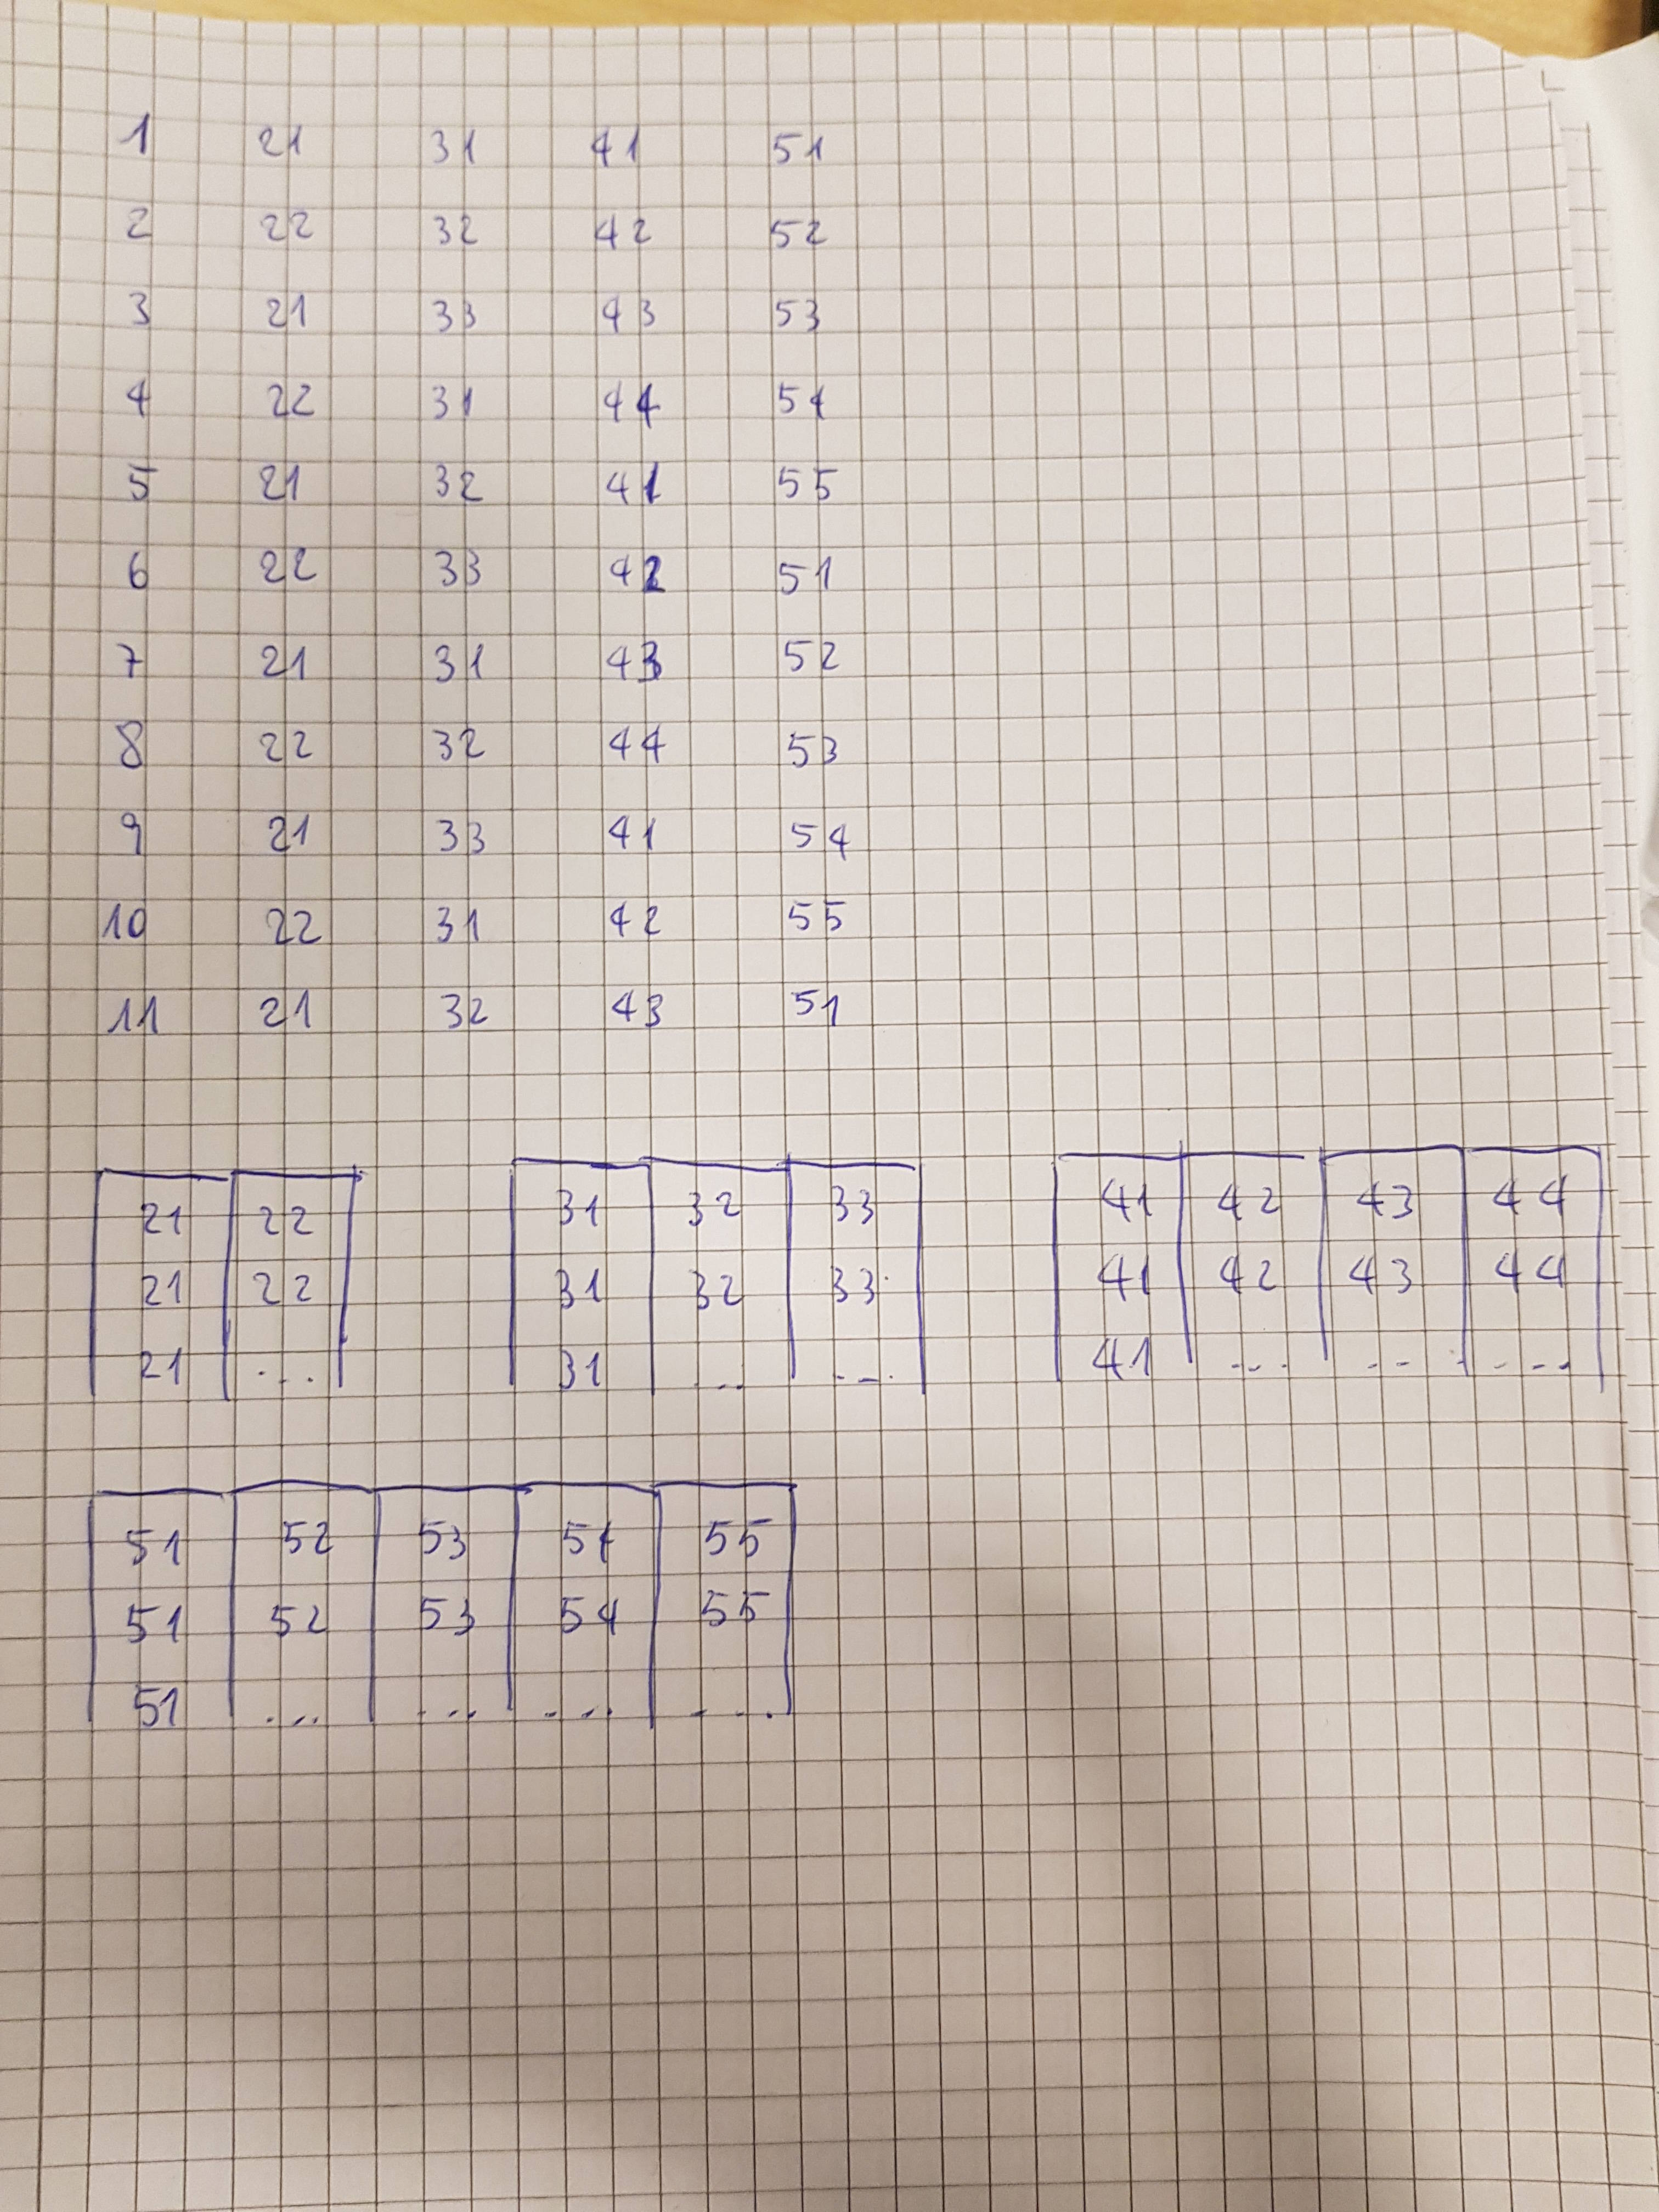 1 21 31 41 51
2 22 32 42 52
3 21 33 43 53
4 22 31 44 54
5 21 32 41 55
6 22 33 42 51
7 21 31 43 52
8 22 32 44 53
9 21 33 41 54
10 22 31 42 55
11 21 32 43 51
21 22 31 32 33 41 42 43 44
21 22 31 32 33 41 42 43 44
21 ... 31 ... ... 41 ... ... ...
51 52 53 54 55
51 52 53 54 55
51 ... ... ... ...